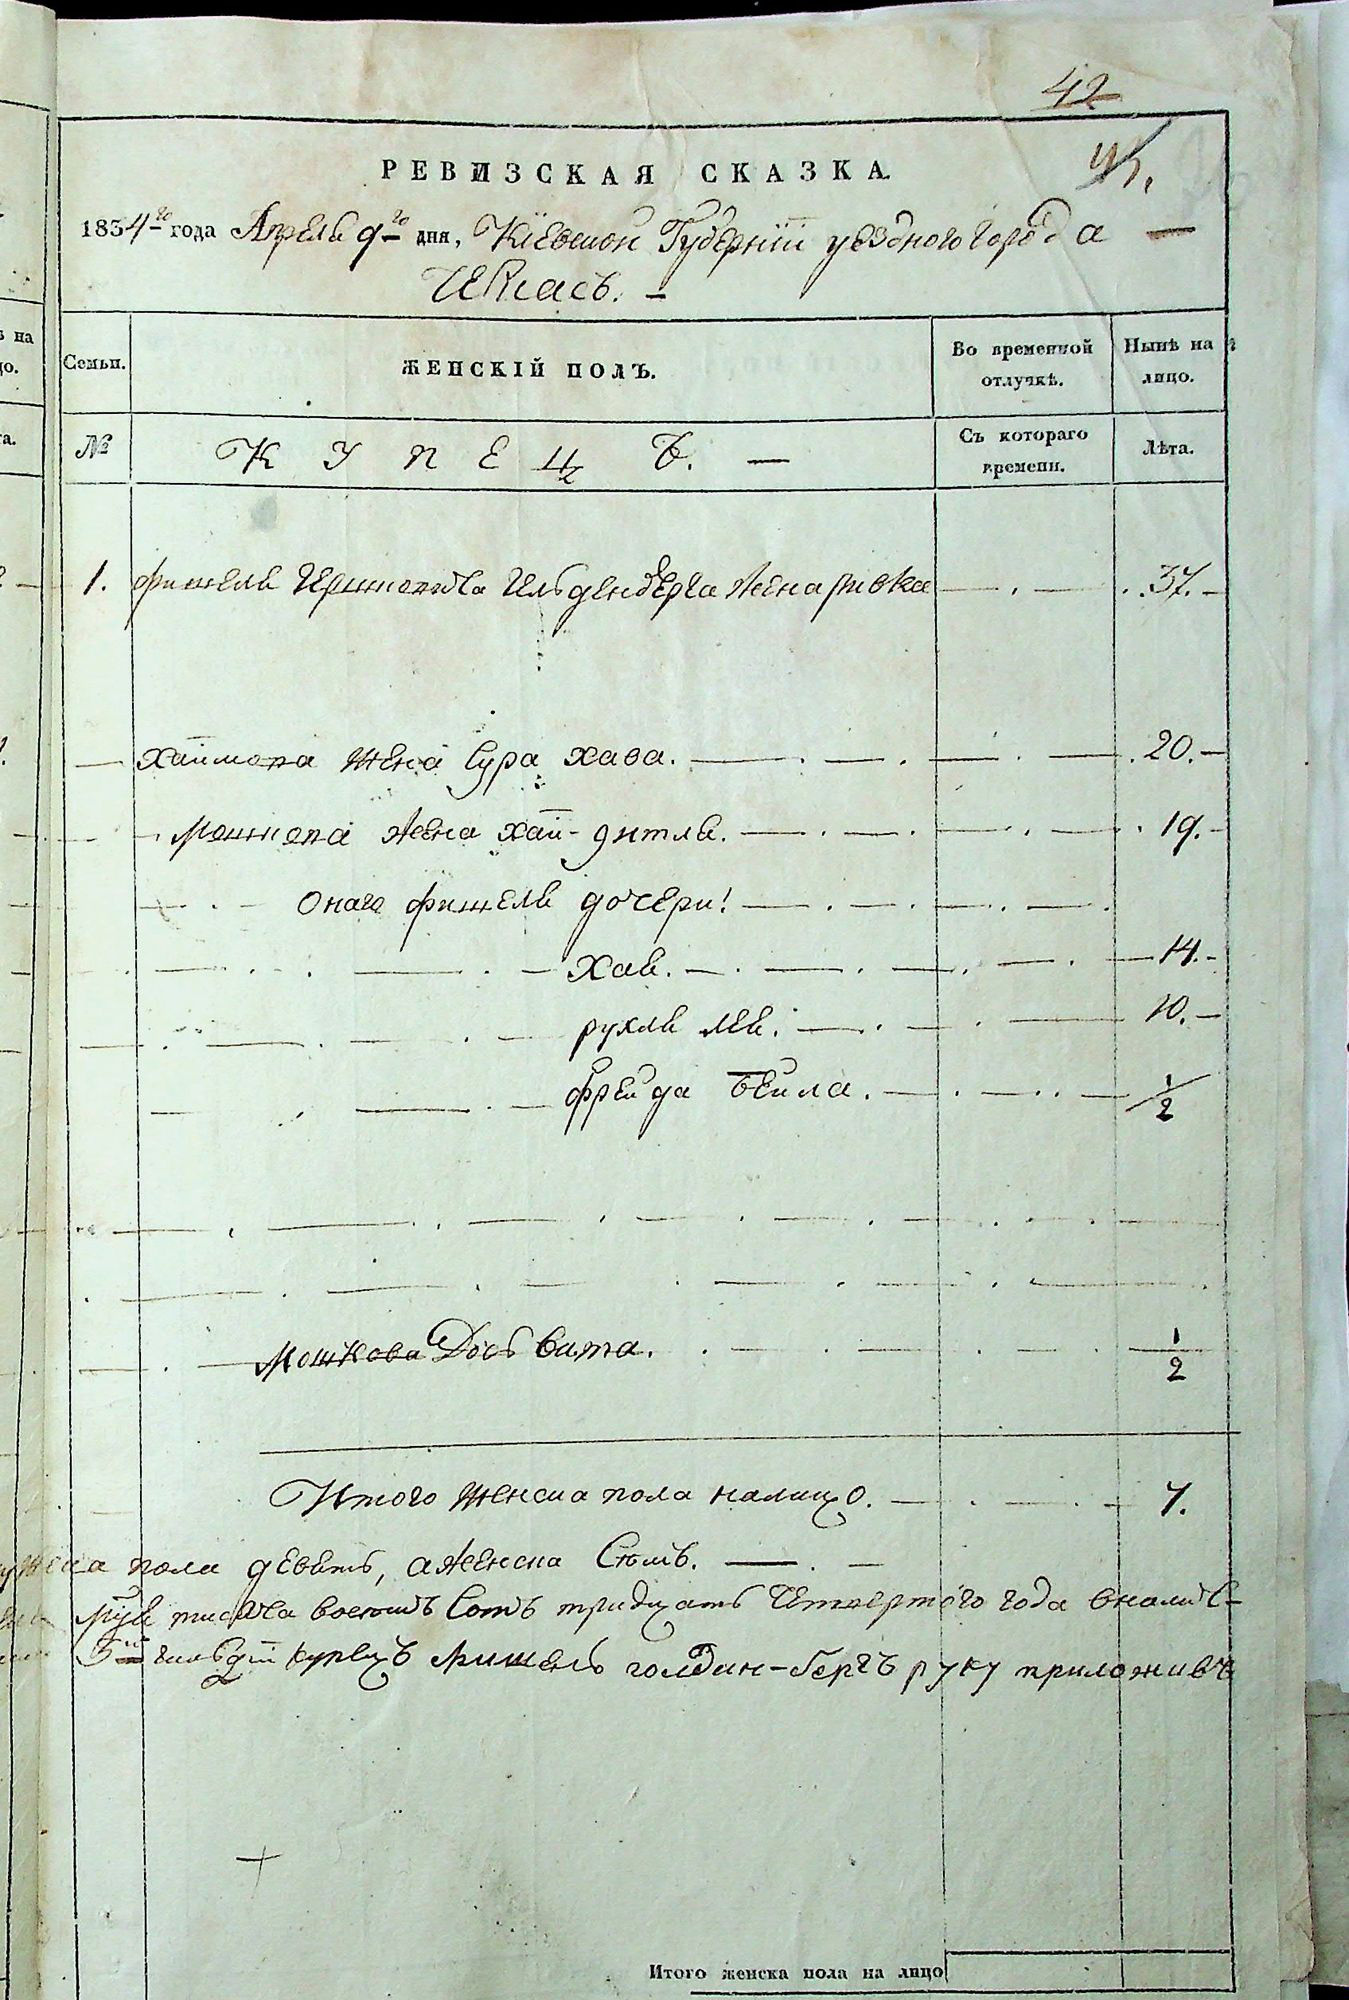 42
РЕВИЗСКАЯ СКАЗКА.
1834го года Апреля 9го дня, Кіевской Губерніи уездного города
Черкасъ.
Семьи.
ЖЕНСКІЙ ПОЛЪ.
Во временной отлучкѣ.
Ныне на лицо.
№
КУПЕЦЪ.
Съ котораго времени.
Лѣта.
1. Фишеля Гершковича Гельденберга жена Ривка 37.
Хаимова жена Сура Хава. 20.
Мошкова жена Хай-Дитля. 19.
Онаго Фишеля дочери:
Хая. 14.
Рухля Лея. 10.
Фрейда Бейла. 1/2
Мошкова Дочь Бита. 1/2
Итого женска пола налицо. 7.
пола девять, а женска Семь.
тысяча восемь Сотъ тридцать Четвертого года
купецъ Фишель Голдин-бергъ руку приложивъ
Итого женска пола на лицо